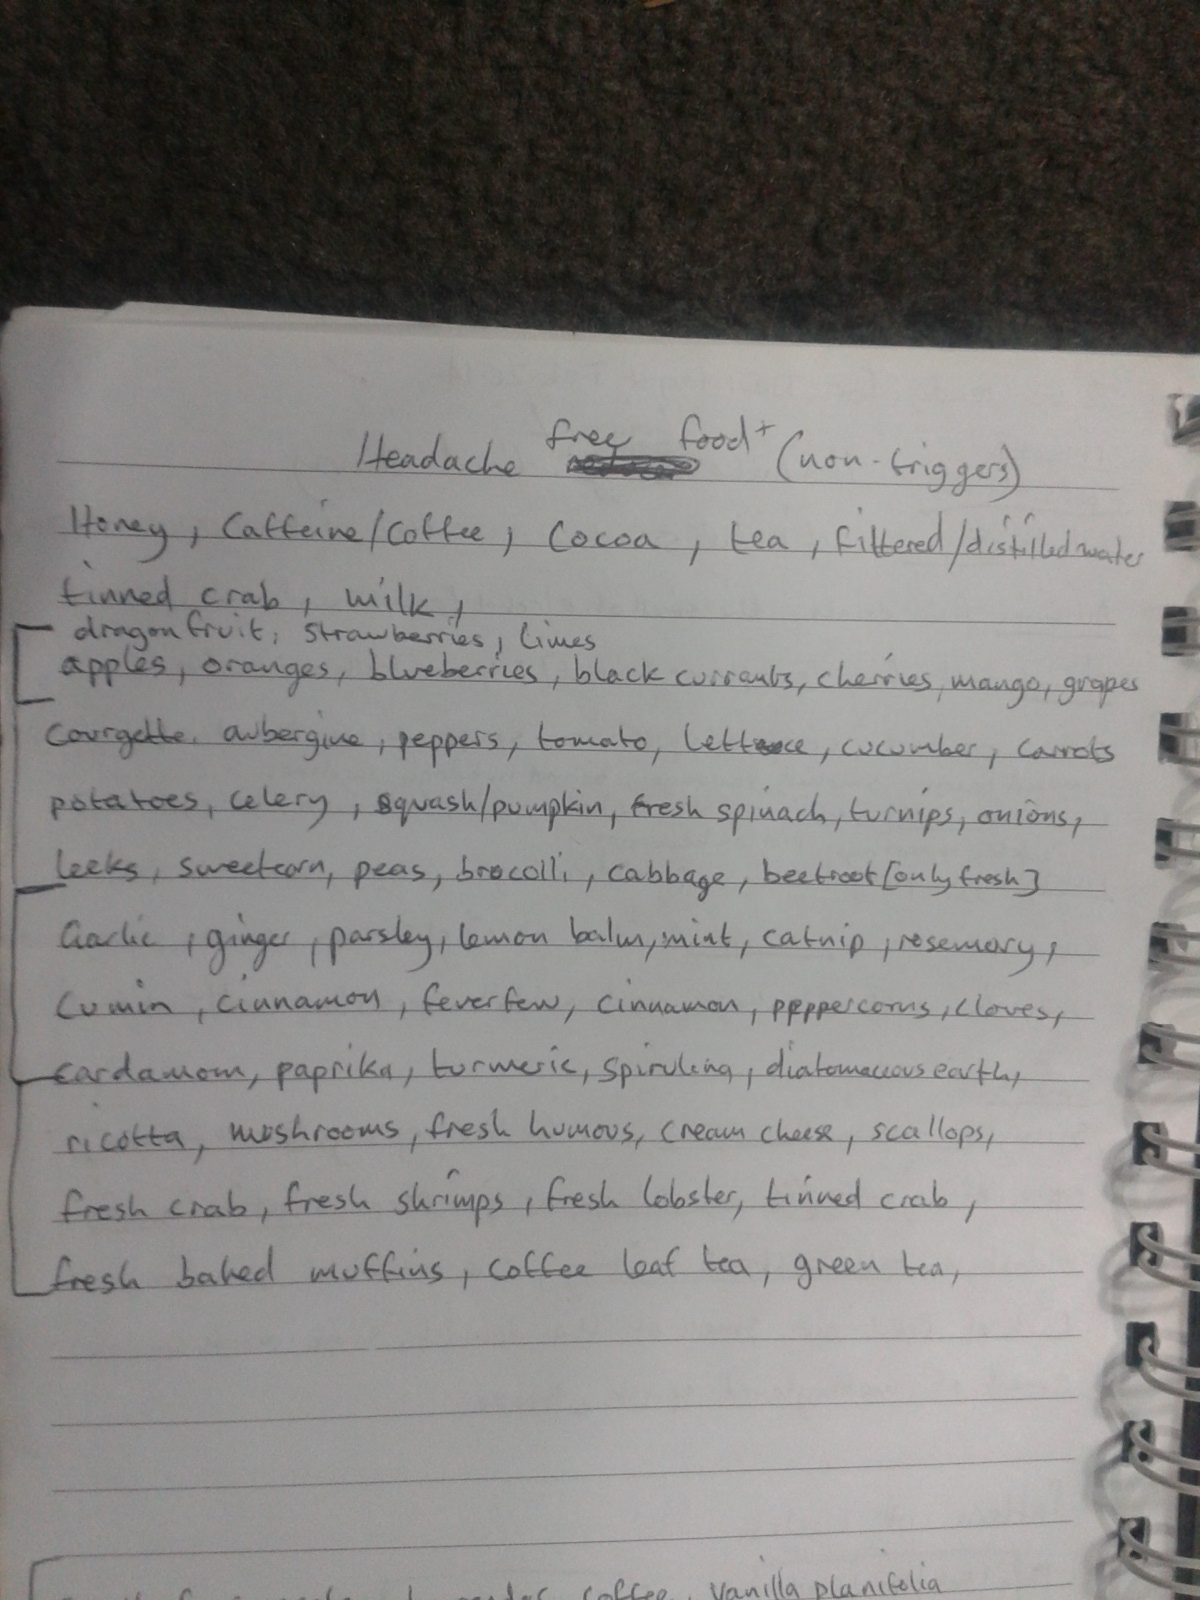 Headache free food+ (non-triggers)
Honey, Caffeine/Coffee, Cocoa, tea, filtered/distilled water
tinned crab, milk,
dragon fruit, strawberries, limes
apples, oranges, blueberries, black currants, cherries, mango, grapes
Courgette, aubergine, peppers, tomato, lettuce, cucumber, carrots
potatoes, celery, squash/pumpkin, fresh spinach, turnips, onions,
leeks, sweetcorn, peas, brocolli, cabbage, beetroot [only fresh]
Garlic, ginger, parsley, lemon balm, mint, catnip, rosemary,
Cumin, cinnamon, feverfew, cinnamon, peppercorns, cloves,
cardamom, paprika, turmeric, spirulina, diatomaceous earth,
ricotta, mushrooms, fresh humous, cream cheese, scallops,
fresh crab, fresh shrimps, fresh lobster, tinned crab,
fresh baked muffins, coffee leaf tea, green tea,
coffee, vanilla planifolia